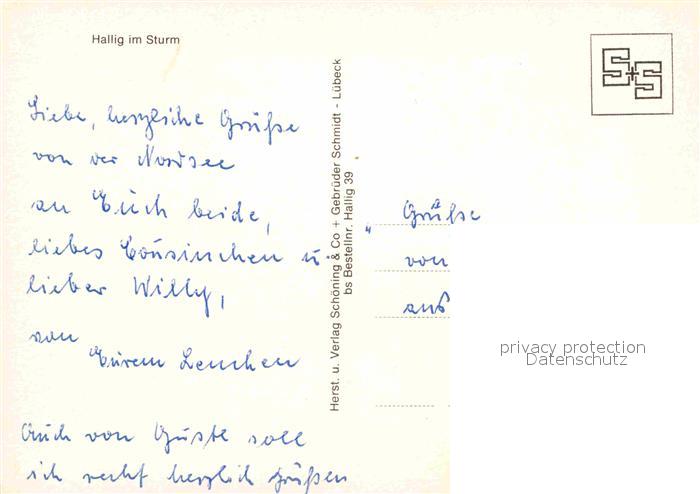 Hallig im Sturm
S+S
Liebe, herzliche Grüße
von der Nordsee
an Euch beide,
liebes Cousinchen u.
lieber Willy,
von
Eurem Lenchen
Auch von Gustl soll
ich recht herzlich grüßen
Herst. u. Verlag Schöning & Co + Gebrüder Schmidt - Lübeck
bs Bestellnr. Hallig 39
Grüße
von
aus
privacy protection
Datenschutz